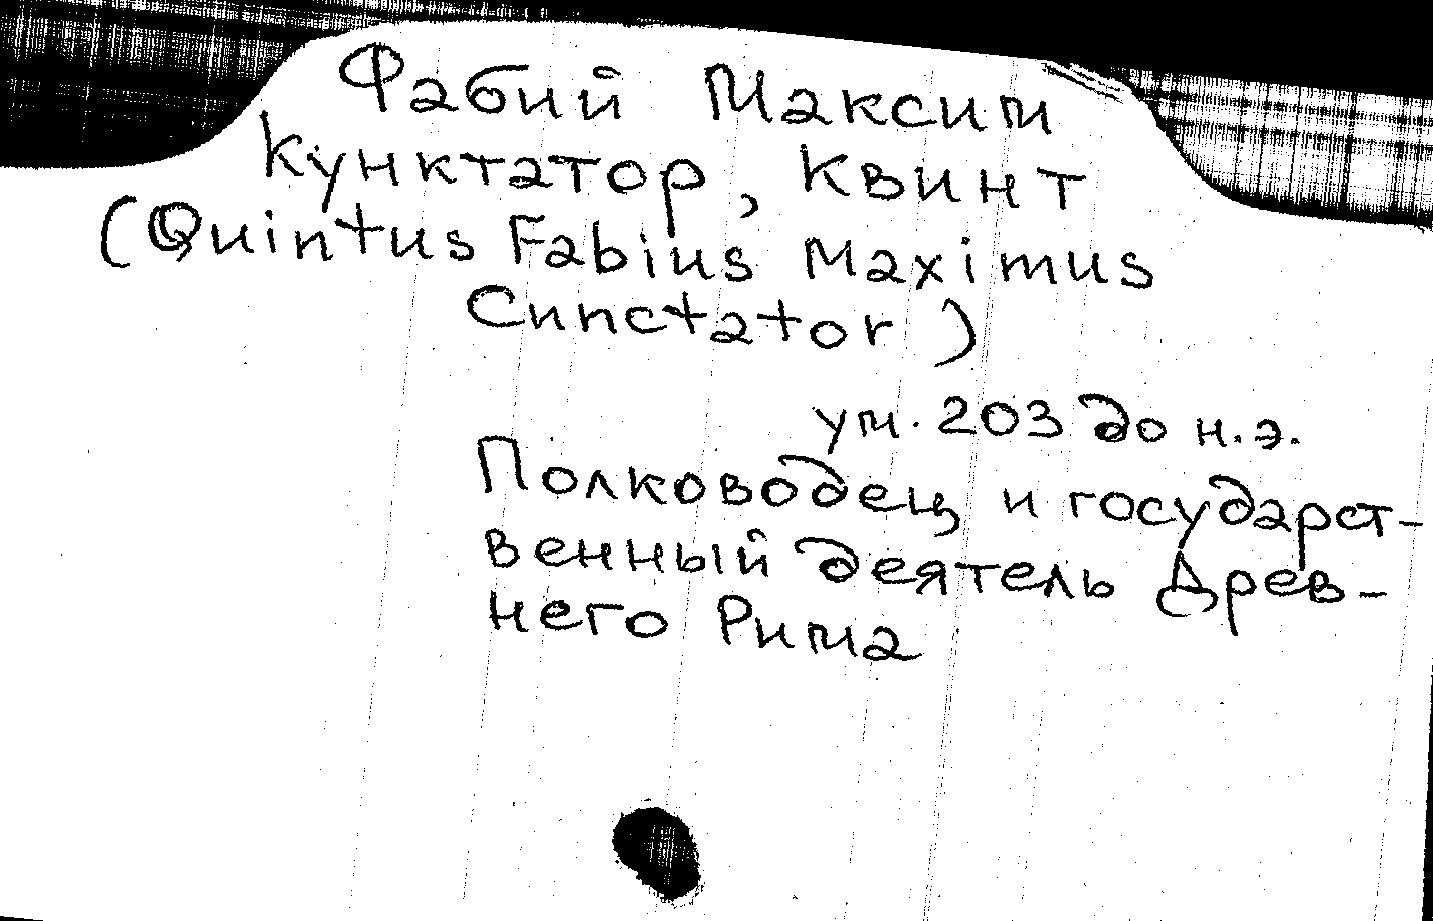 Фабий Максим
Кунктатор, Квинт
(Quintus Fabius Maximus
Cunctator)
ум. 203 до н.э.
Полководец и государст-
венный деятель Древ-
него Рима